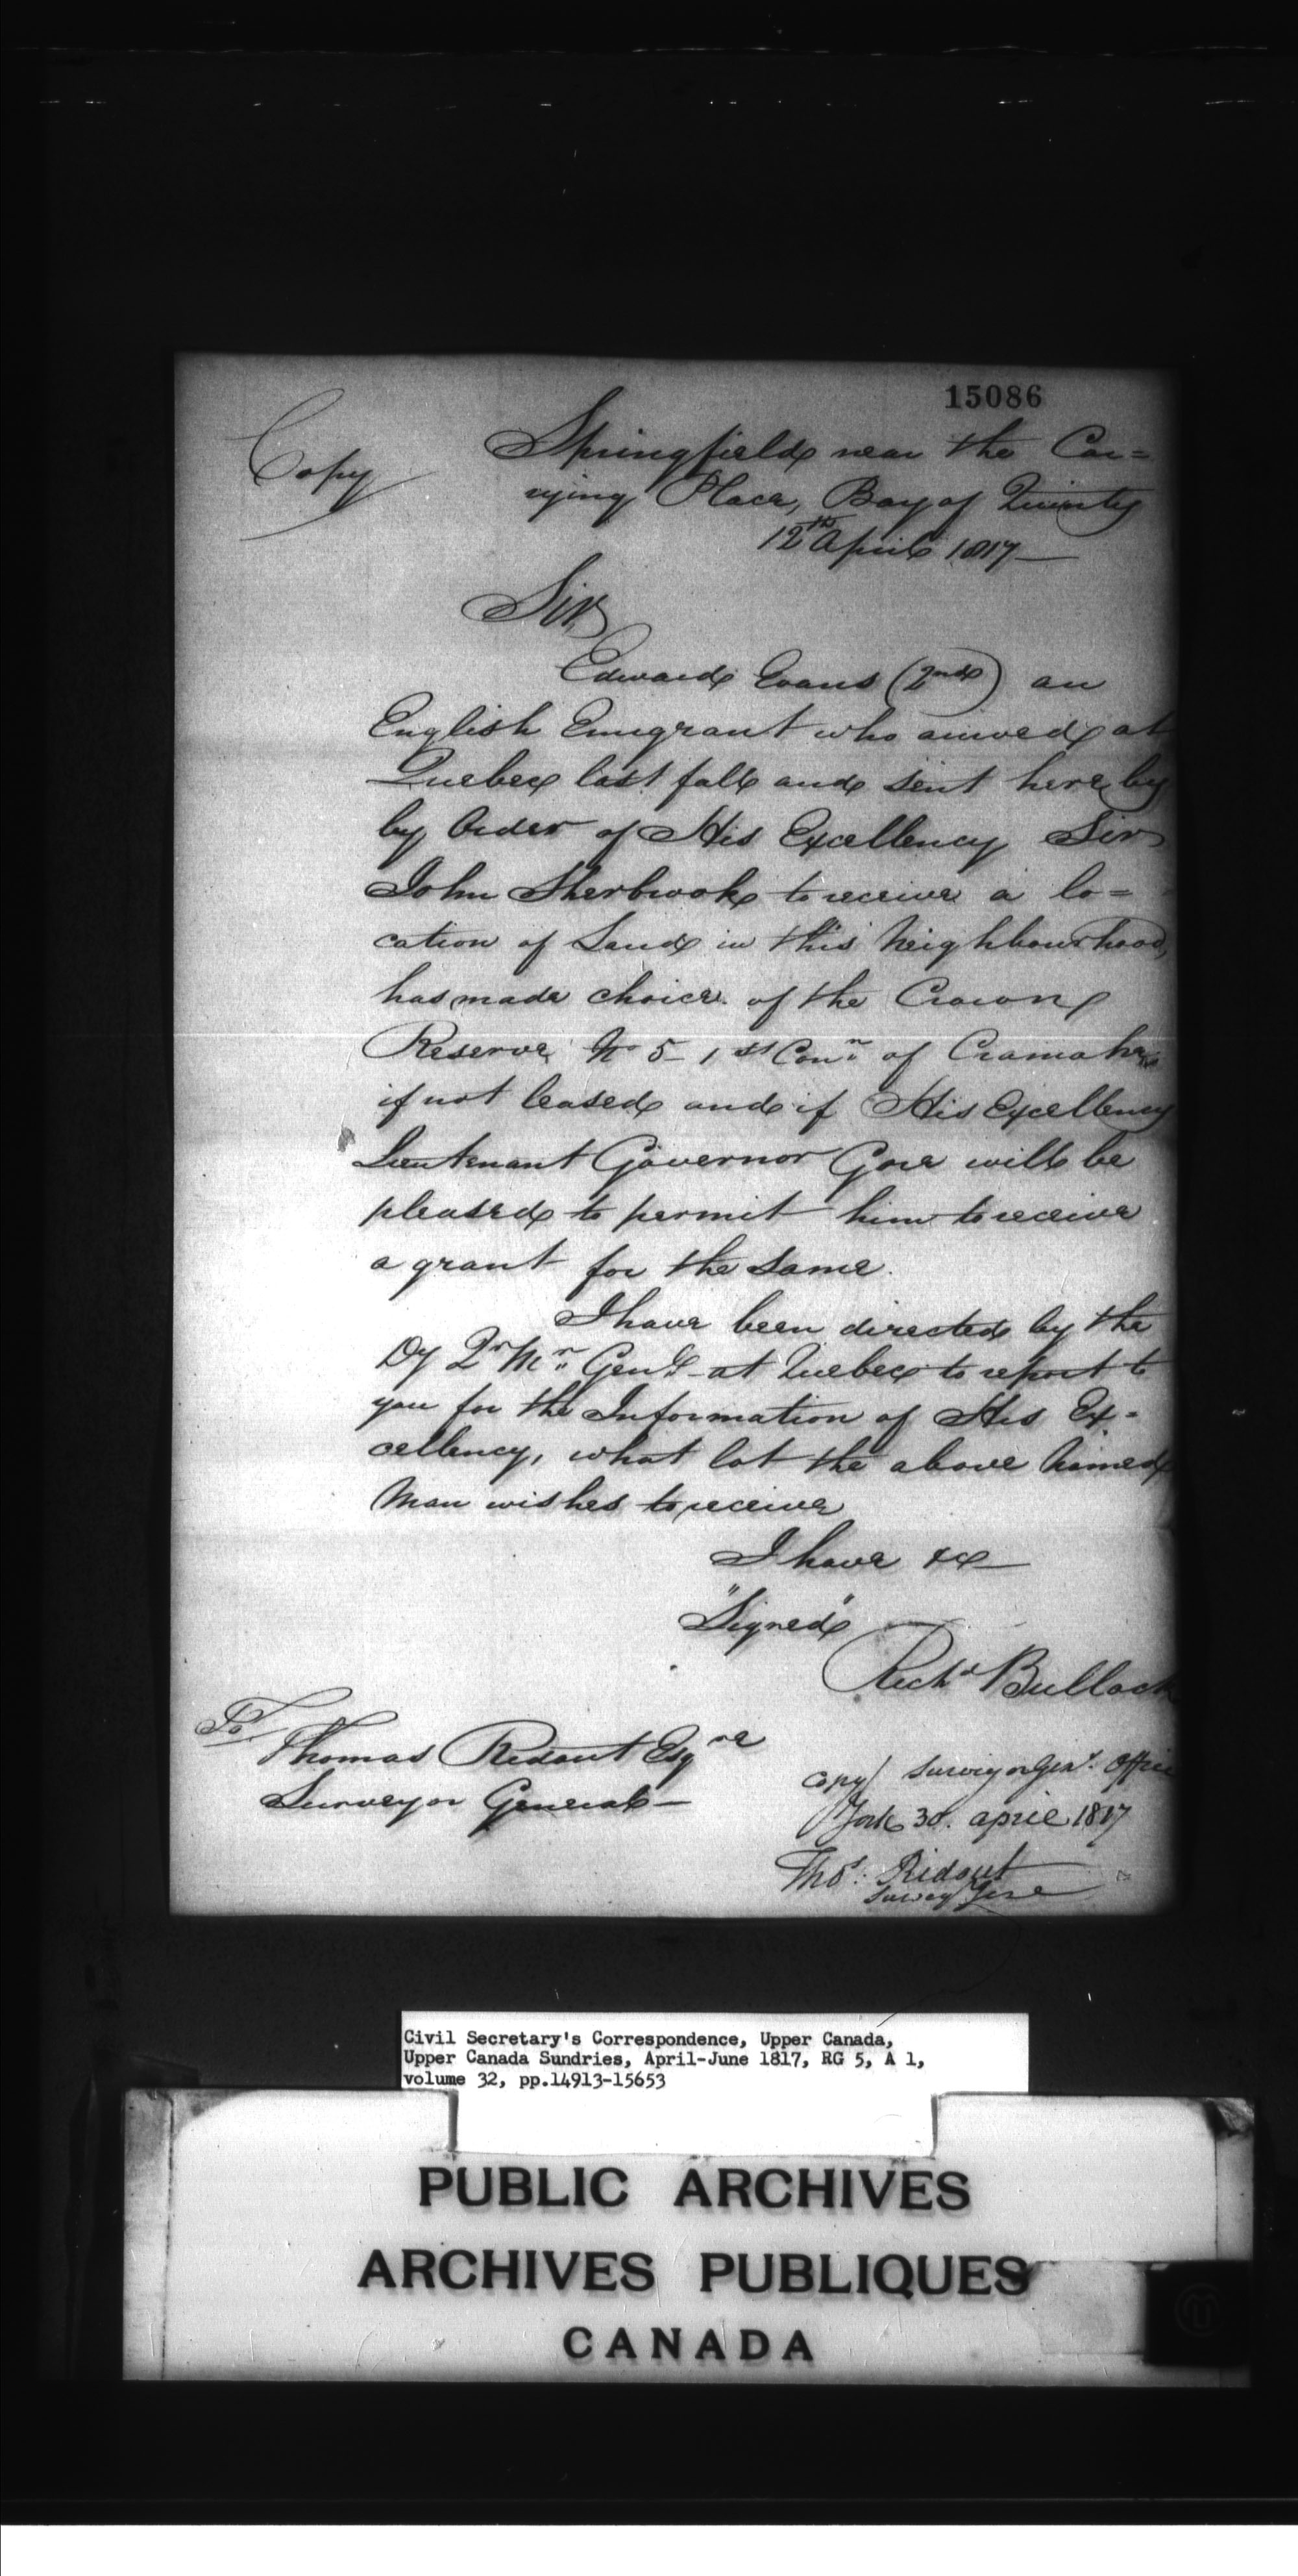 15086
Copy
Springfield near the Car=
rying Place, Bay of Quinty
12th April 1817—
Sir,
Edward Evans (2nd) an
English Emigrant who arrived at
Quebec last fall and sent here by
by Order of His Excellency Sir
John Sherbrook to receive a lo=
cation of Land in this Neighbourhood,
has made choice of the Crown
Reserve No 5 - 1st Conn of Cramahe,
if not leased and if His Excellency
Lieutenant Governor Gore will be
pleased to permit him to receive
a grant for the same.
I have been directed by the
Dy Qr Mr Genl at Quebec to report to
you for the Information of His Ex=
cellency, what lot the above Named
Man wishes to receive
I have &c—
"Signed"
Richd Bullock
To
Thomas Ridout Esqre
Surveyor General—
copy/ Surveyor Genl. Office
York 30. april 1817
Thos. Ridout
Survey Genl
Civil Secretary's Correspondence, Upper Canada,
Upper Canada Sundries, April-June 1817, RG 5, A 1,
volume 32, pp.14913-15653
PUBLIC ARCHIVES
ARCHIVES PUBLIQUES
CANADA